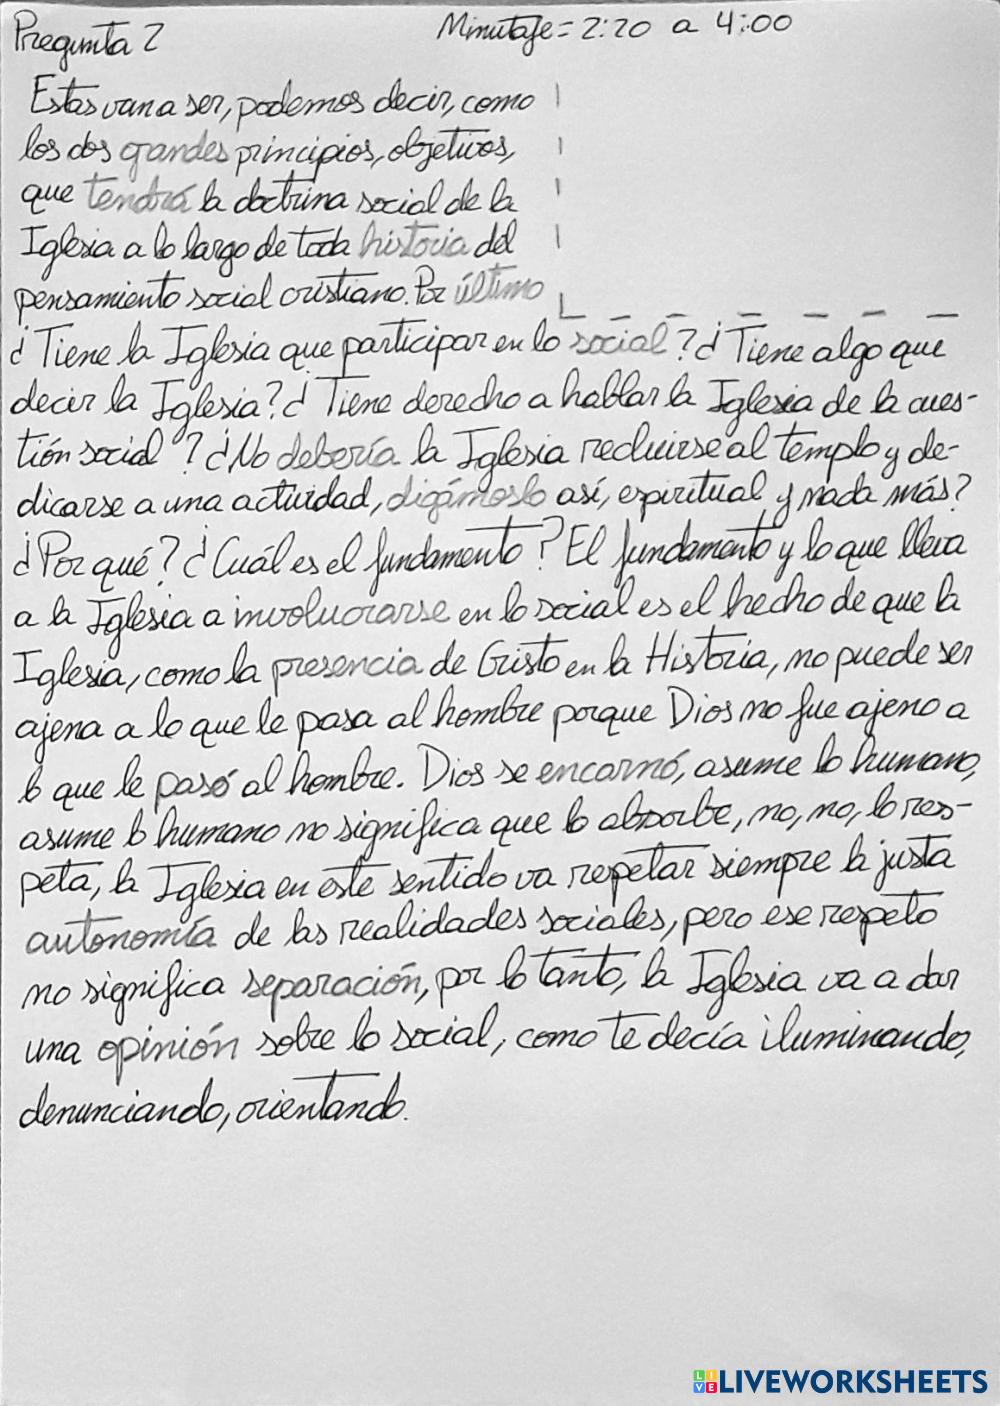 Pregunta 2
Minutaje = 2:20 a 4:00
Estas van a ser, podemos decir, como
los dos grandes principios, objetivos,
que tendrá la doctrina social de la
Iglesia a lo largo de toda historia del
pensamiento social cristiano. Por último
¿Tiene la Iglesia que participar en lo social? ¿Tiene algo que
decir la Iglesia? ¿Tiene derecho a hablar la Iglesia de la cues-
tión social? ¿No debería la Iglesia recluirse al templo y de-
dicarse a una actividad, digámoslo así, espiritual y nada más?
¿Por qué? ¿Cuál es el fundamento? El fundamento y lo que lleva
a la Iglesia a involucrarse en lo social es el hecho de que la
Iglesia, como la presencia de Cristo en la Historia, no puede ser
ajena a lo que le pasa al hombre porque Dios no fue ajeno a
lo que le pasó al hombre. Dios se encarnó, asume lo humano,
asume lo humano no significa que lo absorbe, no, no, lo res-
peta, la Iglesia en este sentido va respetar siempre la justa
autonomía de las realidades sociales, pero ese respeto
no significa separación, por lo tanto, la Iglesia va a dar
una opinión sobre lo social, como te decía iluminando,
denunciando, orientando.
LIVEWORKSHEETS